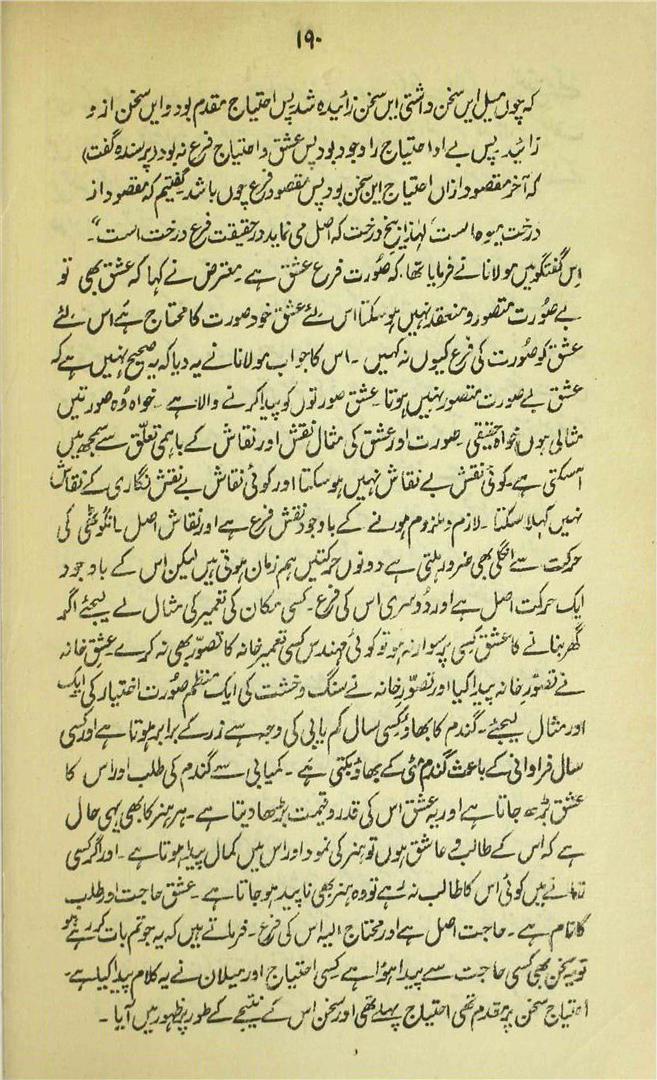 ۱۹۰
کہ چوں میل ایں سخن داشتی ایں سخن زائیدہ شد پس احتیاج مقدم بود و ایں سخن از و
زائید۔ پس بے او احتیاج را وجود بود پس عشق و احتیاج فرع نہ بود (پرسندہ گفت)
کہ آخر مقصود ازاں احتیاج ایں سخن بود پس مقصود فرع چوں باشد گفتیم کہ مقصود از
درخت میوہ است، لہٰذا بیخ درخت کہ اصل می نماید در حقیقت فرع درخت است"۔
اس گفتگو میں مولانا نے فرمایا تھا، کہ صورت فرع عشق ہے۔ معترض نے کہا کہ عشق بھی تو
بے صورت متصور و منعقد نہیں ہو سکتا اس لئے عشق خود صورت کا محتاج ہے اس لئے
عشق کو صورت کی فرع کیوں نہ کہیں ۔ اس کا جواب مولانا نے یہ دیا کہ یہ صحیح نہیں ہے کہ
عشق بے صورت متصور نہیں ہوتا۔ عشق صورتوں کو پیدا کرنے والا ہے ۔ خواہ وہ صورتیں
مثالی ہوں خواہ حقیقی ۔ صورت اور عشق کی مثال نقش اور نقاش کے باہمی تعلق سے سمجھ میں
آ سکتی ہے۔ کوئی نقش بے نقاش نہیں ہو سکتا اور کوئی نقاش بے نقش نگاری کے نقاش
نہیں کہلا سکتا ۔ لازم و ملزوم ہونے کے باوجود نقش فرع ہے اور نقاش اصل ۔ انگوٹھی کی
حرکت سے انگلی بھی ضرور ہلتی ہے دونوں حرکتیں ہم زمان ہوتی ہیں لیکن اس کے باوجود
ایک حرکت اصل ہے اور دوسری اس کی فرع ۔ کسی مکان کی تعمیر کی مثال لے لیجئے اگر
گھر بنانے کا عشق کسی پر سوار نہ ہو تو کوئی مہندس کسی تعمیر خانہ کا تصور بھی نہ کرے۔ عشق خانہ
نے تصور خانہ پیدا کیا اور تصور خانہ نے سنگ و خشت کی ایک منظم صورت اختیار کی ایک
اور مثال لیجئے۔ گندم کا بھاؤ کسی سال کم یابی کی وجہ سے زر کے برابر ہوتا ہے اور کسی
سال فراوانی کے باعث گندم مٹی کے بھاؤ بکتی ہے ۔ کمیابی سے گندم کی طلب اور اس کا
عشق بڑھ جاتا ہے اور یہ عشق اس کی قدر و قیمت بڑھا دیتا ہے۔ ہر ہنر کا بھی یہی حال
ہے کہ اس کے طالب و عاشق ہوں تو ہنر کی نمود اور اس میں کمال پیدا ہوتا ہے ۔ اور اگر کسی
زمانے میں کوئی اس کا طالب نہ رہے تو وہ ہنر بھی ناپید ہو جاتا ہے ۔ عشق حاجت اور طلب
کا نام ہے ۔ حاجت اصل ہے اور محتاج الیہ اس کی فرع ۔ فرماتے ہیں کہ یہ جو تم بات کر رہے ہو
تو یہ سخن بھی کسی حاجت سے پیدا ہوا ہے کسی احتیاج اور میلان نے یہ کلام پیدا کیا ہے۔
احتیاج سخن پر مقدم تھی احتیاج پہلے تھی اور سخن اس کے نتیجے کے طور پر ظہور میں آیا ۔